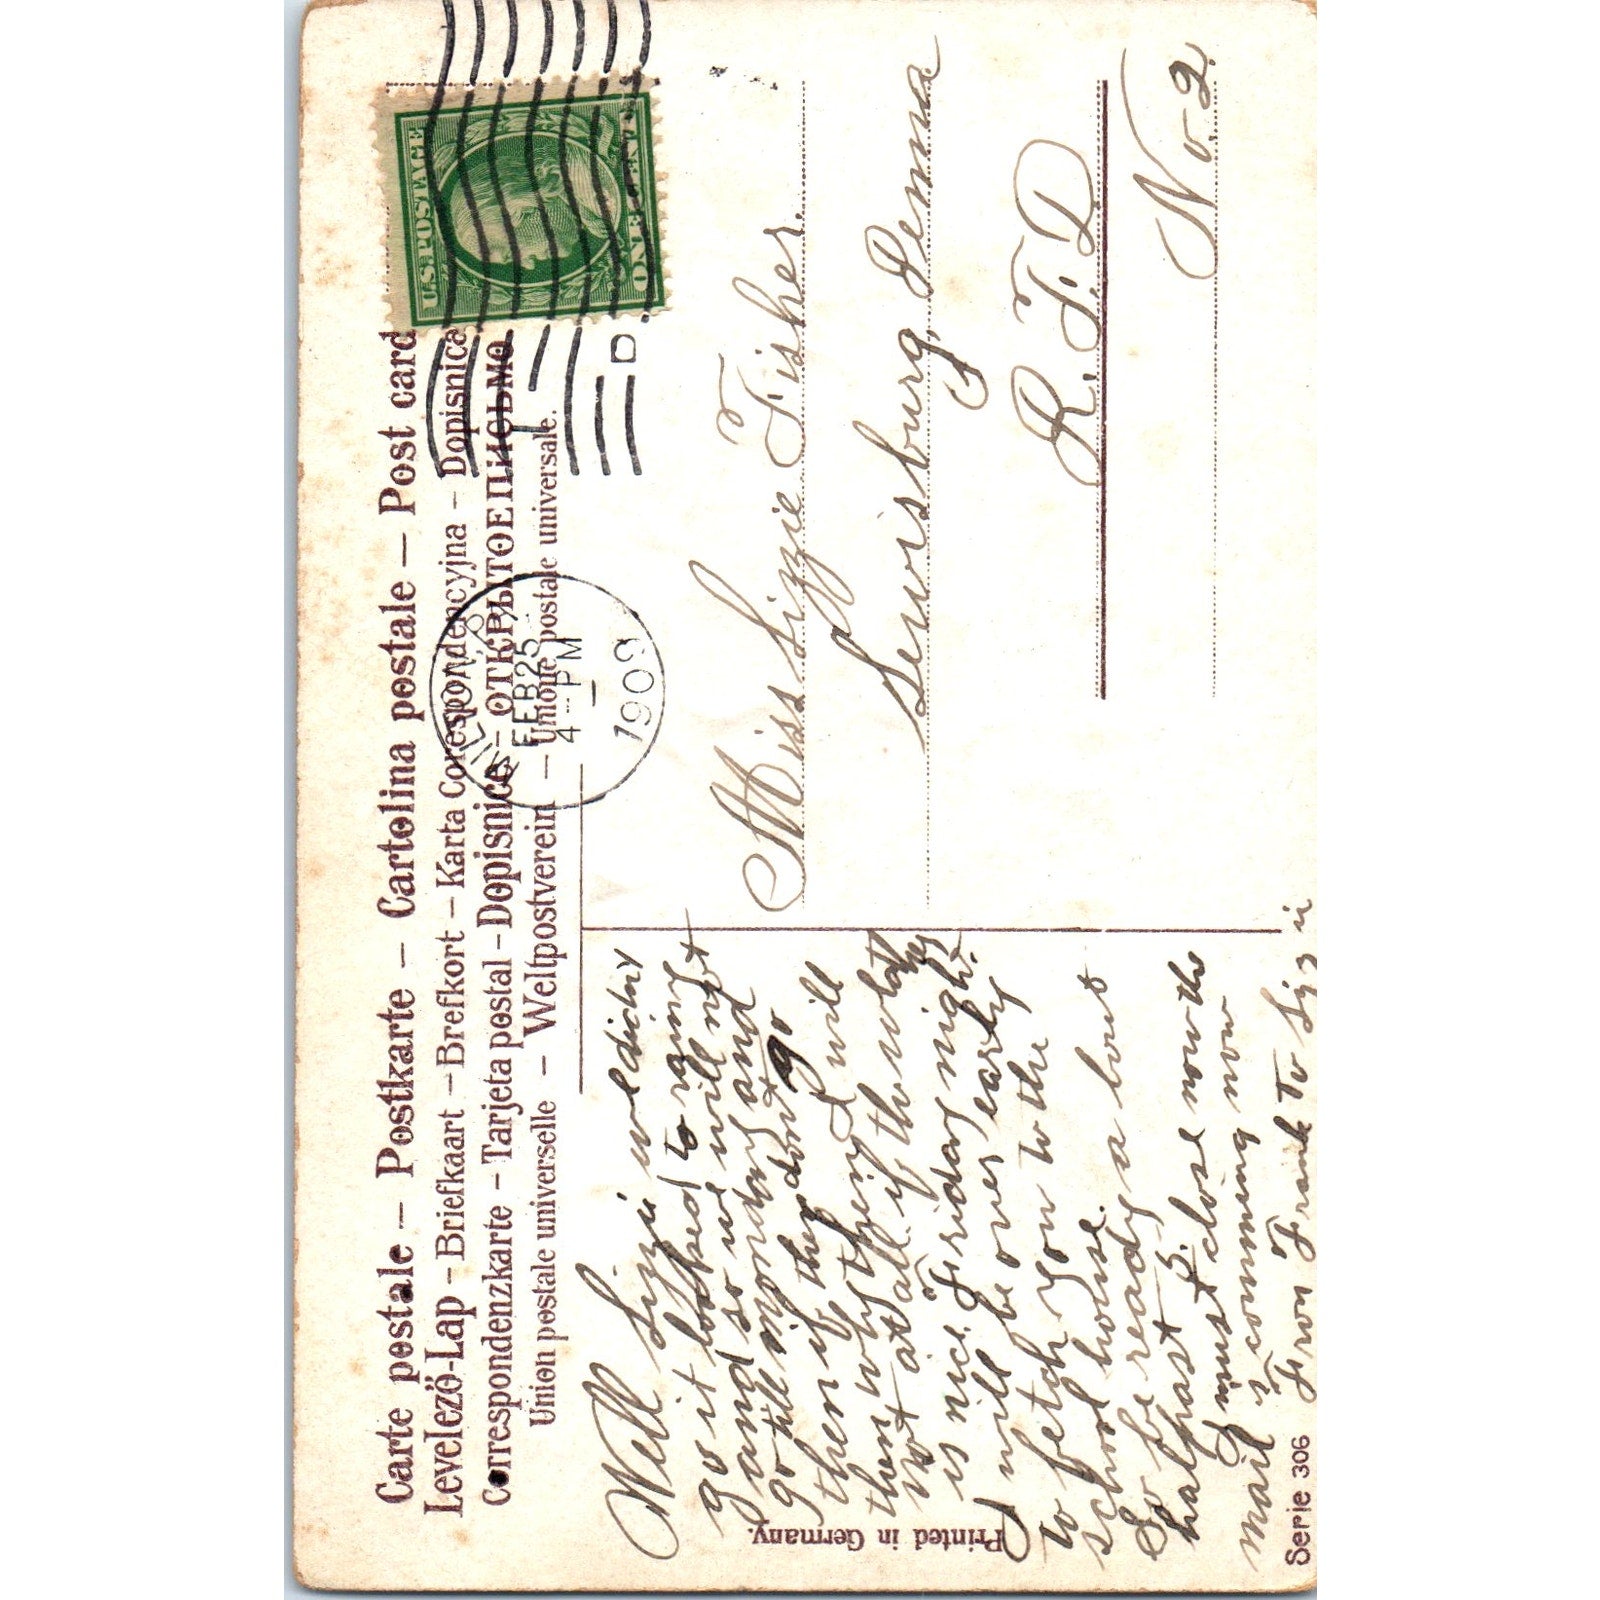 Carte postale – Postkarte – Cartolina postale – Post card
Levelező-Lap – Briefkaart – Brefkort – Karta Corespondencyjna – Dopisnica
Correspondenzkarte – Tarjeta postal – Dopisnice – ОТКРЫТОЕ ПИСЬМО
Union postale universelle – Weltpostverein – Unione postale universale.
U.S. POSTAGE
ONE CENT
FEB 25
4 - PM
1909
D
Well Lizzie we didnt
go it looked to rainy
and so we will not
go till monday and
then if they dont go
then why then I will
not at all if the
is nice Friday night
I will be over early
to fetch you to the
school house.
So be ready a bout
halfpast 5.
I must close now the
mail is comming now
From Frank to Lizz
Miss Lizzie Fisher.
Lewisburg, Penna
R. F. D.
No 2.
Printed in Germany.
Serie 306